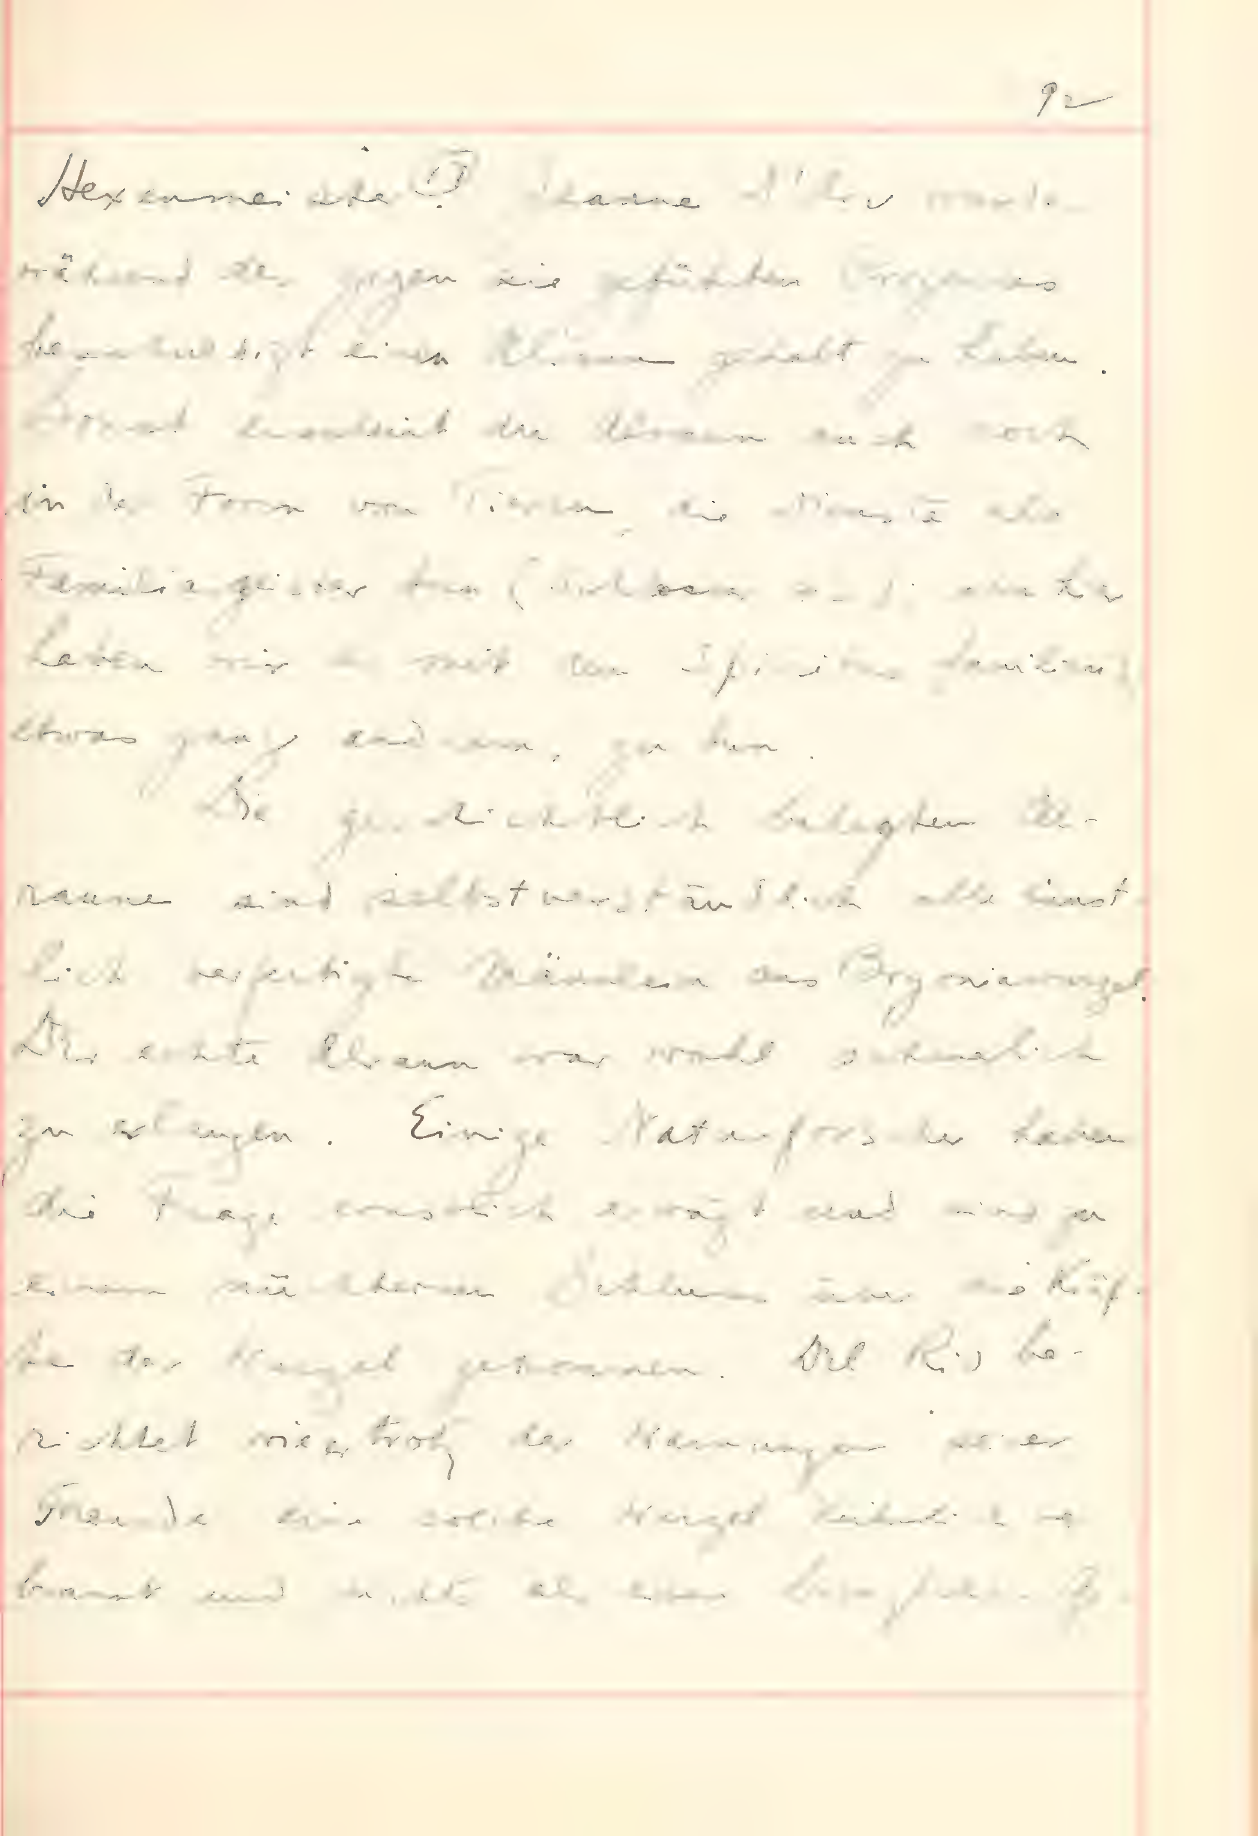 92
Hexenmeister Jeanne d'Arc wurde
während des gegen sie geführten Prozesses
beschuldigt einen Alraun gehabt zu haben.
Sonst erscheint der Alraun auch noch
in der Form von Tieren, die Dienste als
Familiengeister tun (
haben wir es mit dem Spiritus familiaris,
etwas ganz anderem, zu tun.
Die geschichtlich belegten Al-
raune sind selbstverständlich alle künst-
lich verfertigte Männlein aus Bryoniawurzel.
Der echte Alraun war wohl schwerlich
zu erlangen. Einige Naturforscher haben
die Frage ernstlich erwägt und sind zu
einem nüchternen Schluss über die Kräf-
te der Wurzel gekommen. Del Rio be-
richtet wie er trotz der Warnungen seiner
Freunde eine solche Wurzel ver-
brannt und nichts als einen